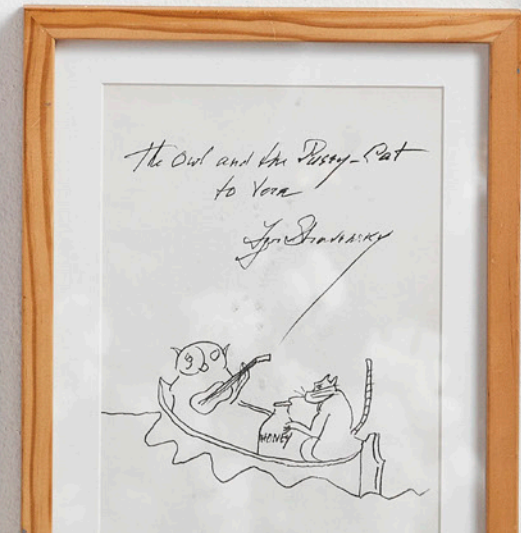 The Owl and the Pussy-Cat
to Vera
Igor Stravinsky
HONEY